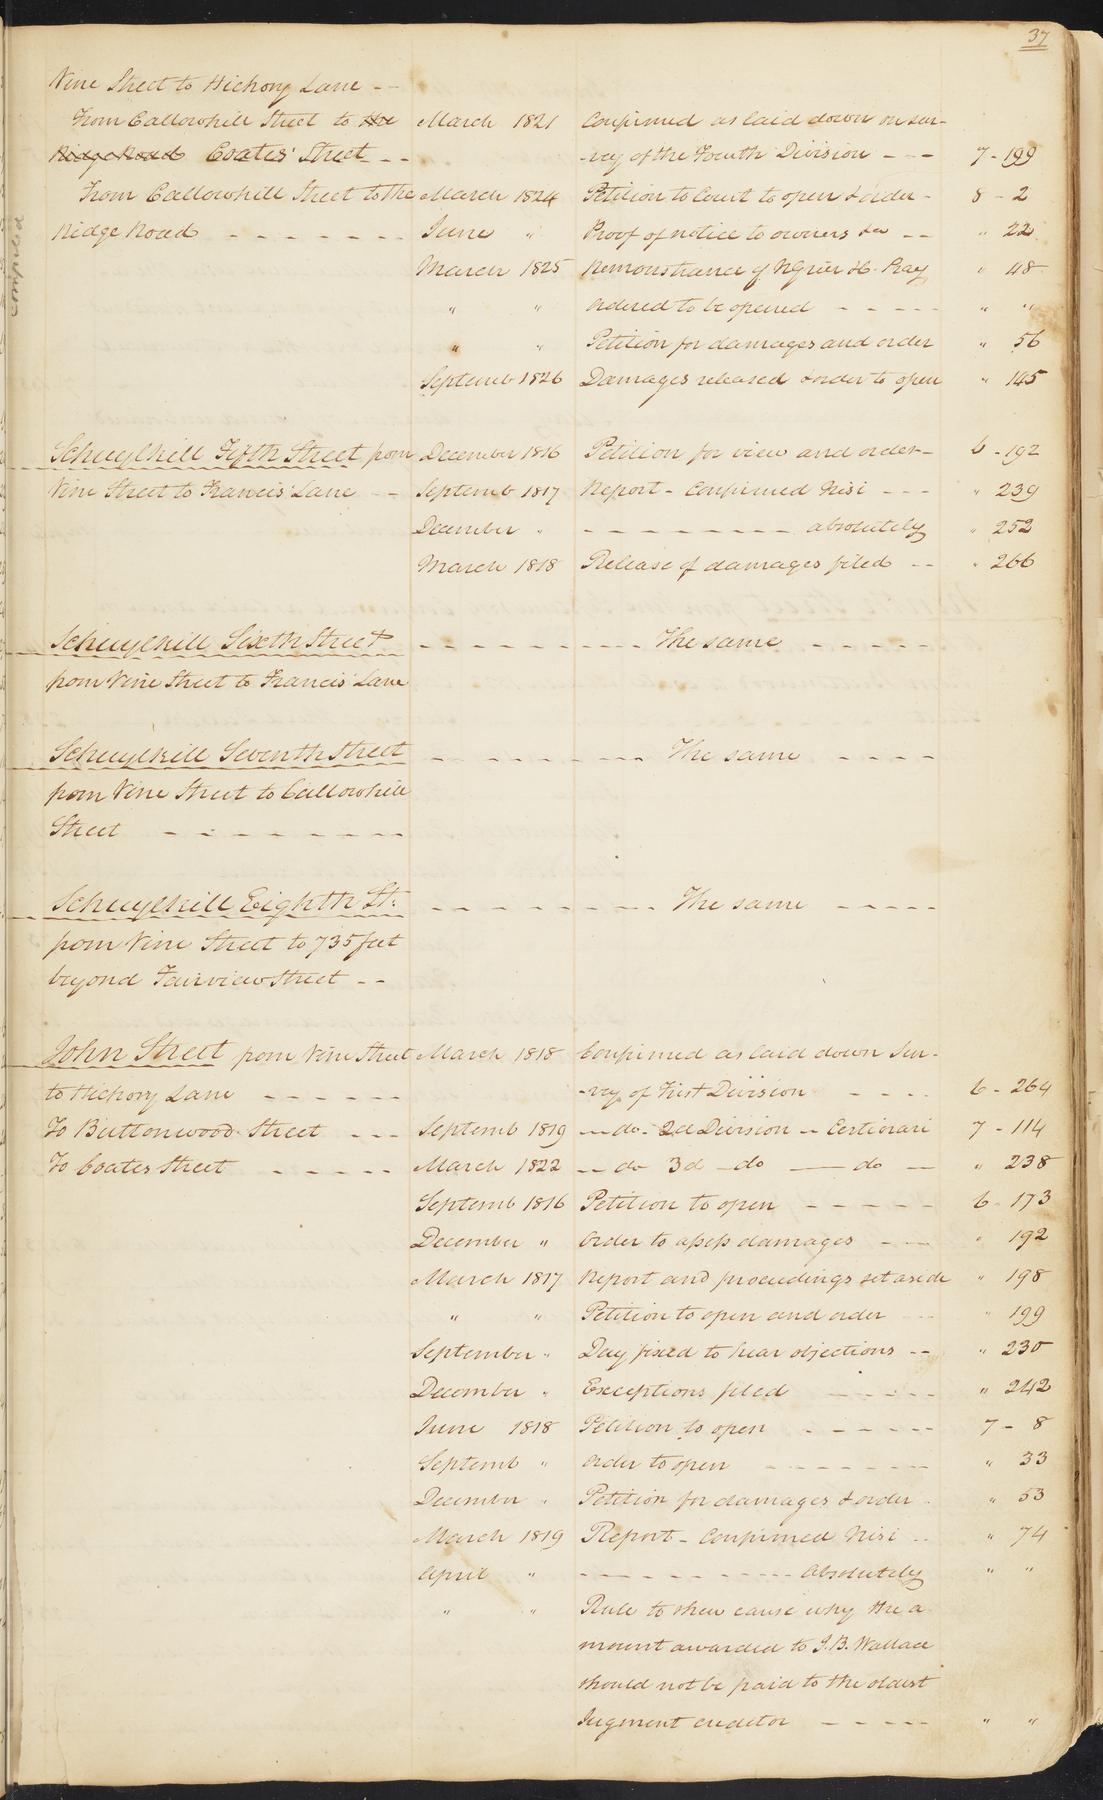 37
Vine Street to Hickory Lane - -
From Callowhill Street to the March 1821 Confirmed as laid down on sur-
Ridge Road Coates' Street - - -vey of the Fourth Division - - - 7 - 199
From Callowhill Street to the March 1824 Petition to Court to open & order - 8 - 2
Ridge Road - - - - - - - June " Proof of notice to owners &c - - " 22
March 1825 Remonstrance of N Grier & C. Pray " 48
" " Ordered to be opened - - - - - " "
" " Petition for damages and order " 56
Septemb 1826 Damages released & order to open " 145
compared
Schuylkill Fifth Street from December 1816 Petition for view and order - 6 - 192
Vine Street to Francis' Lane - - Septemb 1817 Report - Confirmed Nisi - - - " 239
December " - - - - - - - - - absolutely " 252
March 1818 Release of damages filed - - " 266
Schuylkill Sixth Street - - - - - - - - - The same - - - - -
from Vine Street to Francis' Lane
Schuylkill Seventh Street - - - - - - - - The same - - - -
from Vine Street to Callowhill
Street - - - - - - - -
Schuylkill Eighth St. - - - - - - - - The same - - - - -
from Vine Street to 735 feet
beyond Fairview Street - -
John Street from Vine Street March 1818 Confirmed as laid down Sur-
to Hickory Lane - - - - - - -vey of First Division - - - - 6 - 264
To Buttonwood Street - - - Septemb 1819 - do - 2d Division - Certiorari 7 - 114
To Coates Street - - - - - March 1822 - - do 3d - do - do - " 238
Septemb 1816 Petition to open - - - - - 6 - 173
December " Order to assess damages - - - " 192
March 1817 Report and proceedings set aside " 198
" " Petition to open and order - - " 199
September " Day fixed to hear objections - - " 230
December " Exceptions filed - - - - - " 242
June 1818 Petition to open - - - - - - 7 - 8
Septemb " Order to open - - - - - - - " 33
December " Petition for damages & order - " 53
March 1819 Report - Confirmed Nisi - - " 74
April " - - - - - - - - - Absolutely " "
" " Rule to shew cause why the a-
mount awarded to J. B. Wallace
should not be paid to the oldest
Jugment creditor - - - - - " "